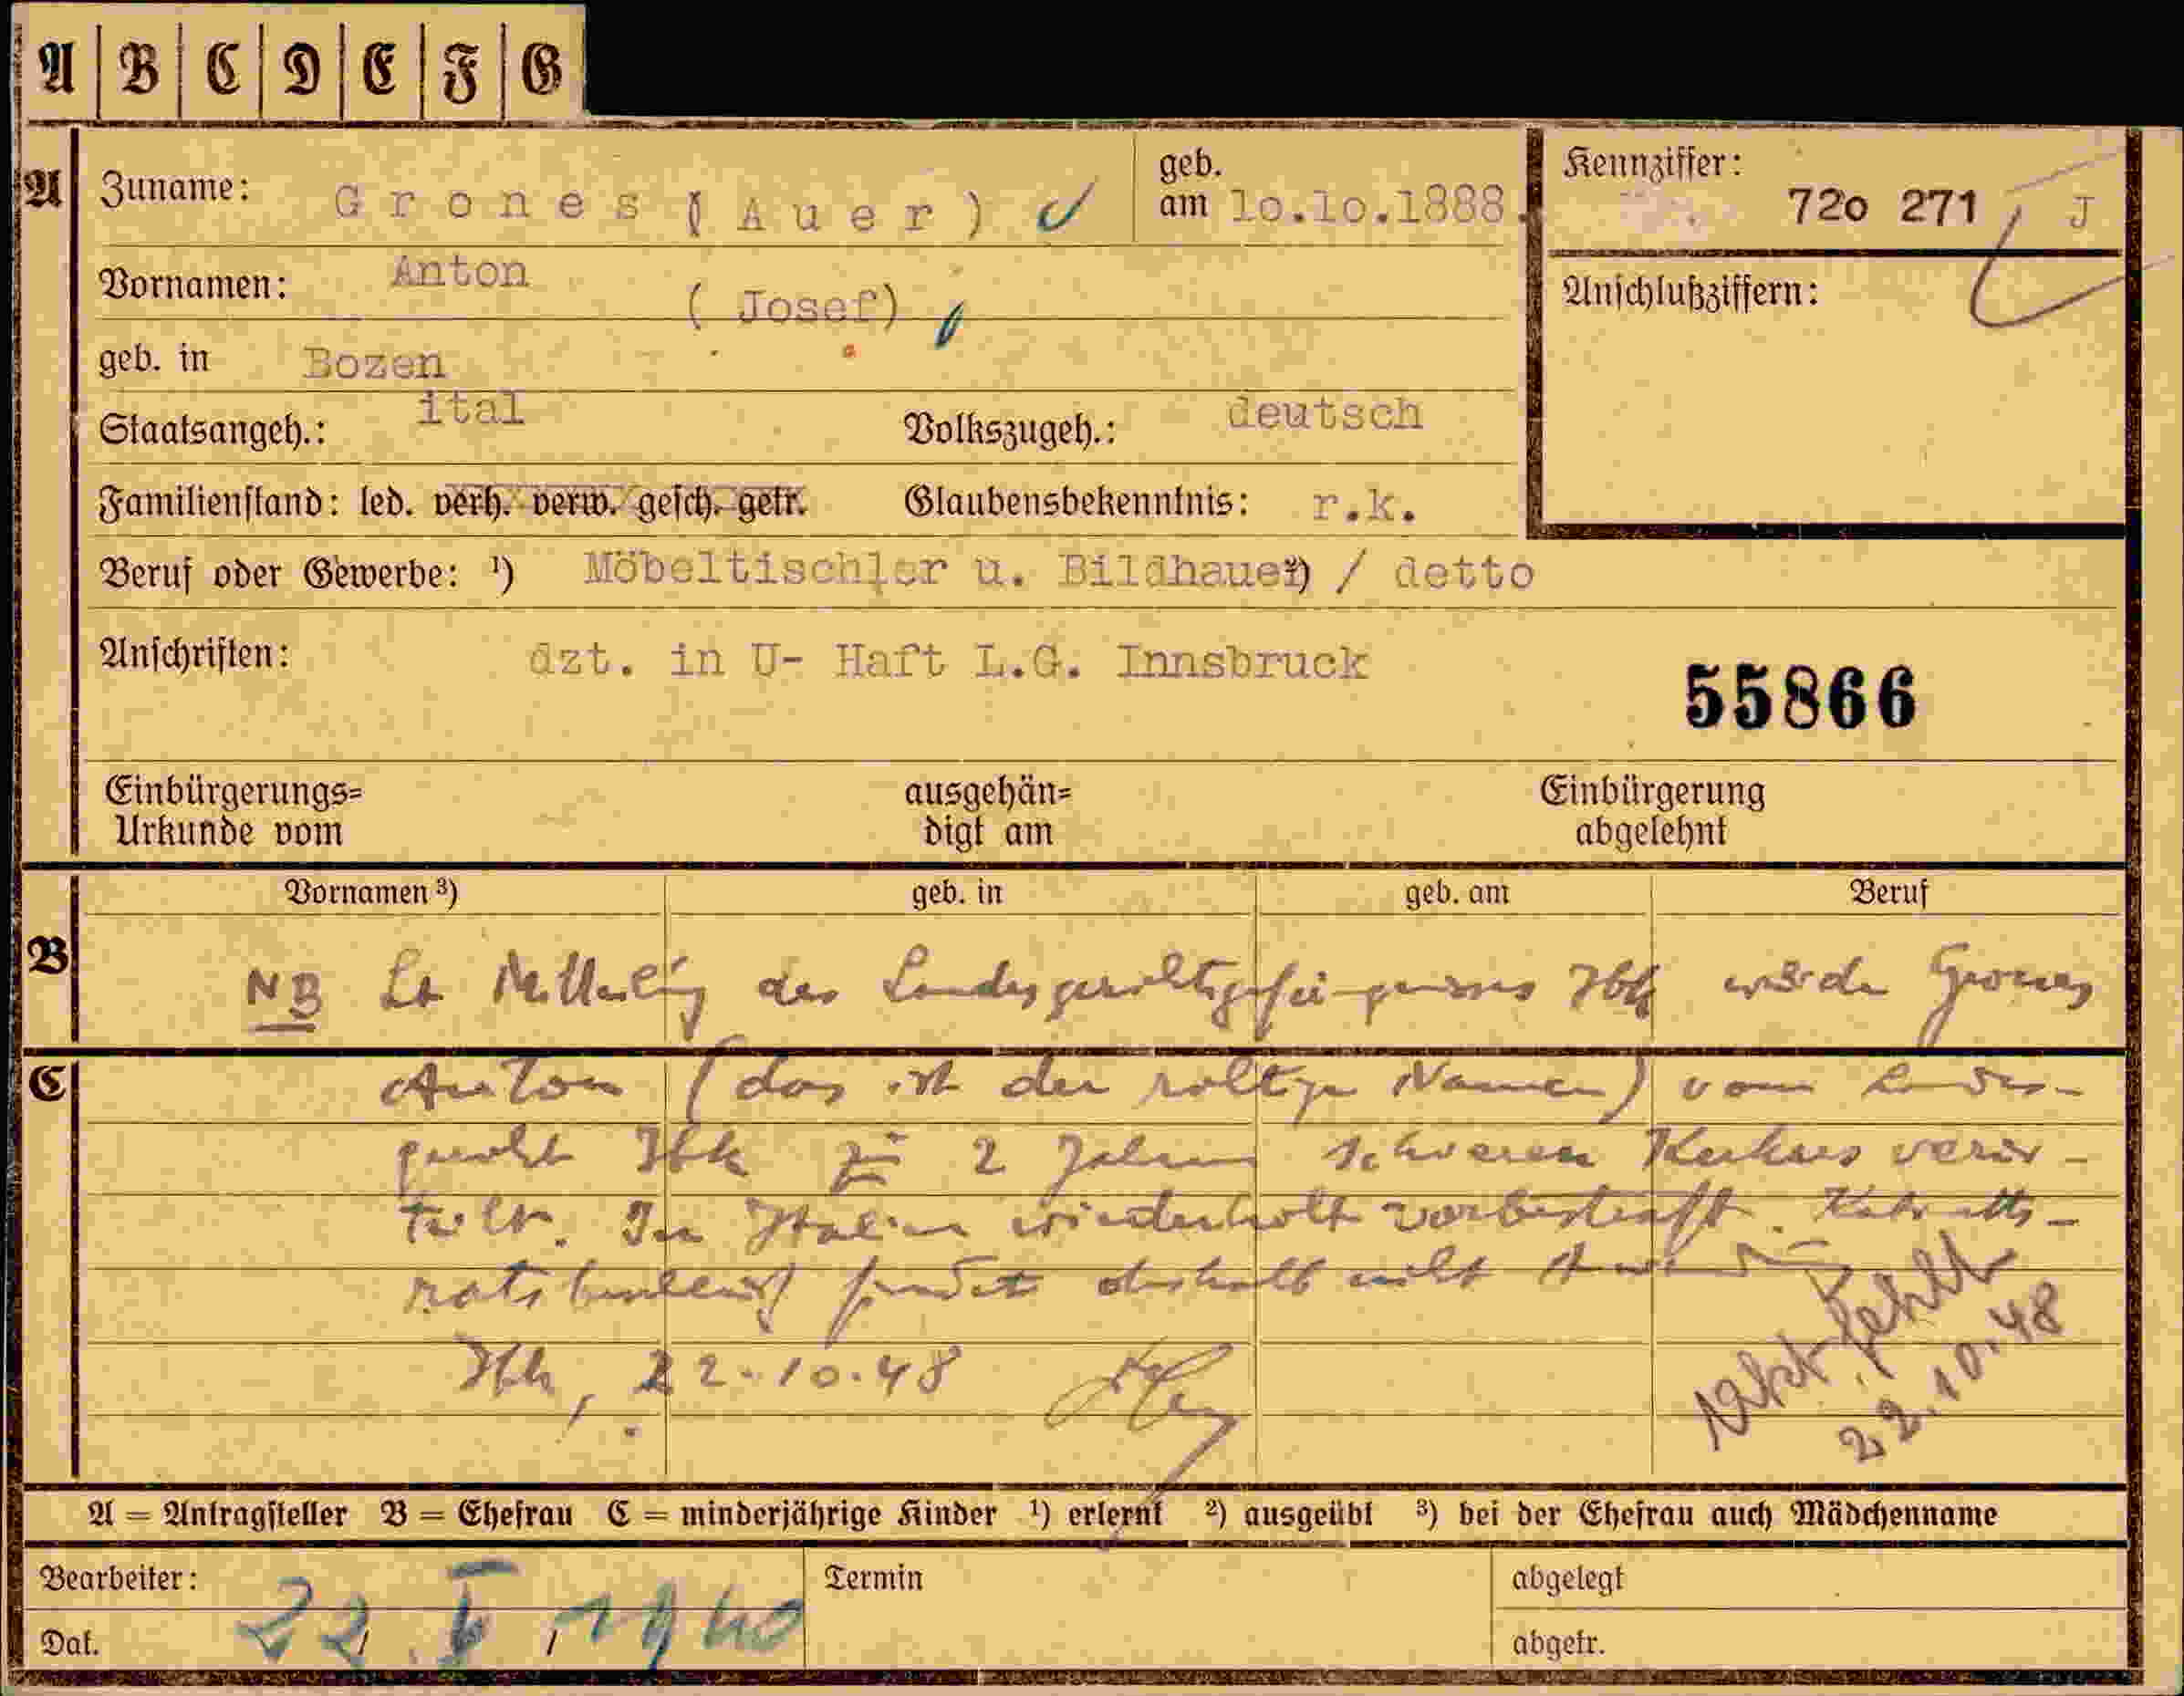 A B C D E F G
A Zuname: Grones (Auer) geb. am 10.10.1888. Kennziffer: 720 271 J
Vornamen: Anton (Josef) Anschlußziffern:
geb. in Bozen
Staatsangeh.: ital Volkszugeh.: deutsch
Familienstand: led. verh. verw. gesch. getr. Glaubensbekenntnis: r.k.
Beruf oder Gewerbe: ¹) Möbeltischler u. Bildhauer ²) / detto
Anschriften: dzt. in U- Haft L.G. Innsbruck
55866
Einbürgerungs= ausgehän= Einbürgerung
Urkunde vom digt am abgelehnt
Vornamen ³) geb. in geb. am Beruf
B NB Lt Mitteilung des Landesgerichtsgefängnisses Ibk wurde Grones
C Anton (das ist der richtige Namen) vom Landes-
gericht Ibk zu 2 Jahren schweren Kerkers verur-
teilt. In Italien wiederholt vorbestraft.
findet deshalb nicht
Ibk, 22.10.48
Akt fehlt
22.10.48
A = Antragsteller B = Ehefrau C = minderjährige Kinder ¹) erlernt ²) ausgeübt ³) bei der Ehefrau auch Mädchenname
Bearbeiter: Termin abgelegt
Dat. 22. V. 1940 abgetr.